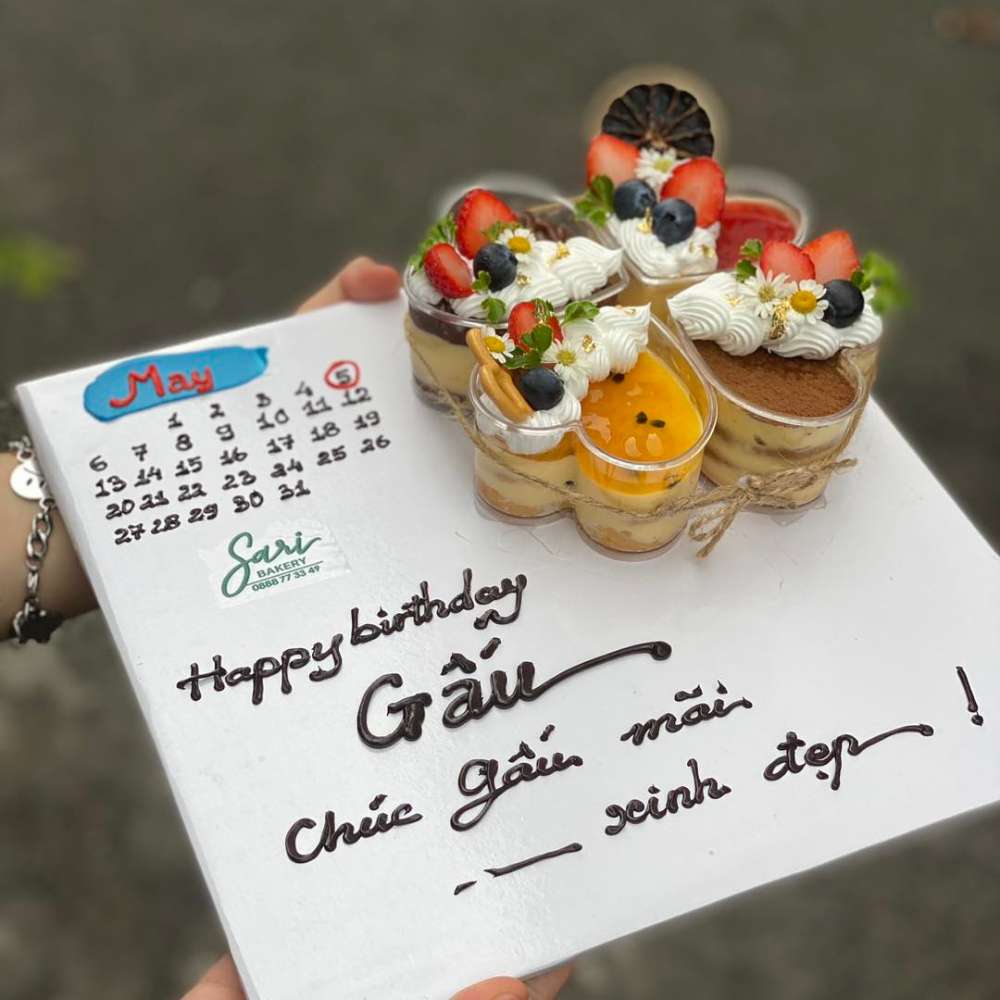 May
1 2 3 4 5
6 7 8 9 10 11 12
13 14 15 16 17 18 19
20 21 22 23 24 25 26
27 28 29 30 31
Sari
BAKERY
0888 77 33 49
Happy birthday
Gấu
Chúc gấu mãi
xinh đẹp !